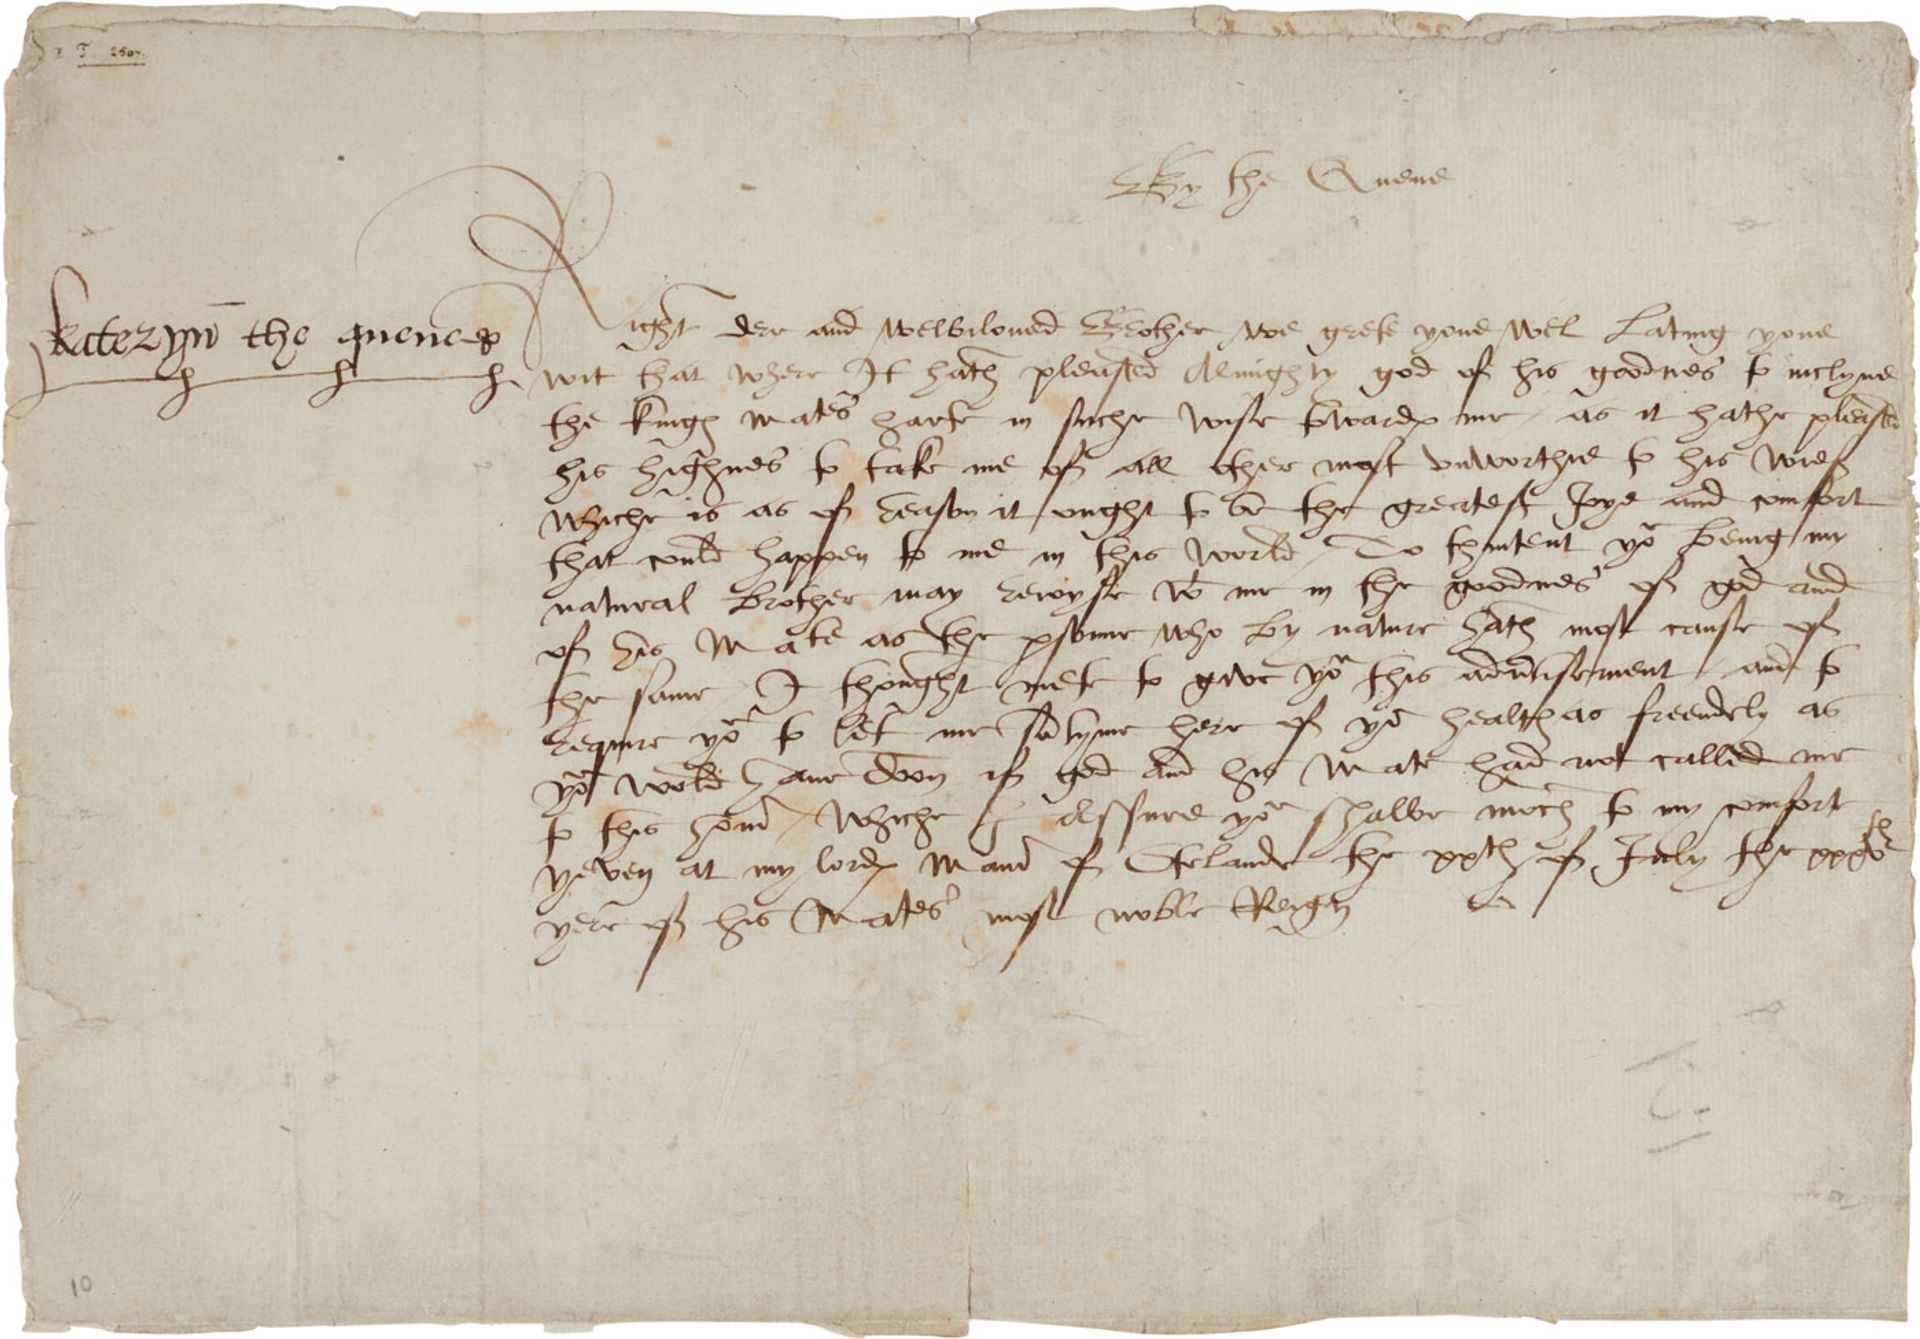 By the Quene
Kateryn the quene
Right dere and welbiloued Brother we grete youe wel Lating youe
wit that where It hath pleased Almighty god of his goodnes to inclyne
the kings Mates harte in suche wise towards me as it hathe pleased
his highnes to take me of all other most unworthie to his wief
whiche is as of reason it ought to be the greatest Joye and comfort
that could happen to me in this world To thintent yor being my
natural Brother may reioyse wt me in the goodnes of god and
of his Mate as the psonne who by nature hath most cause of
the same I thought mete to give yor this advertisement and to
require yor to let me sumtyme here of yor health as freendely as
yor wold have doon if god and his Mate had not called me
to this honor whiche I assure yor shalbe moch to my comfort
yeven at my lords Manor of Otelande the xxth of July the xxxvth
yere of his Mates most noble Reign
10